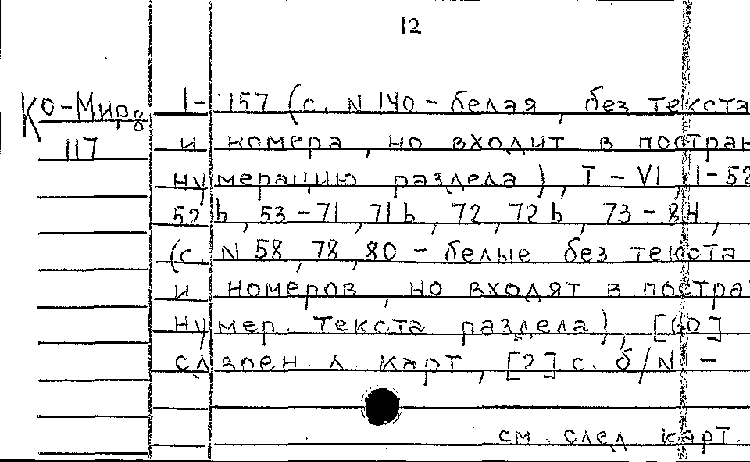 12
Ко-Мирд
117
I- 157 (с. N 140 - белая, без текста
и номера, но входит в постран
нумерацию раздела), I - VI, 1-52
52b, 53-71, 71b, 72, 72b, 73-84,
(с. N 58, 78, 80 - белые без текста
и номеров, но входят в постра
нумер. текста раздела), [60]
сдвоен л. карт, [2] с. б/N -
см. след карт.